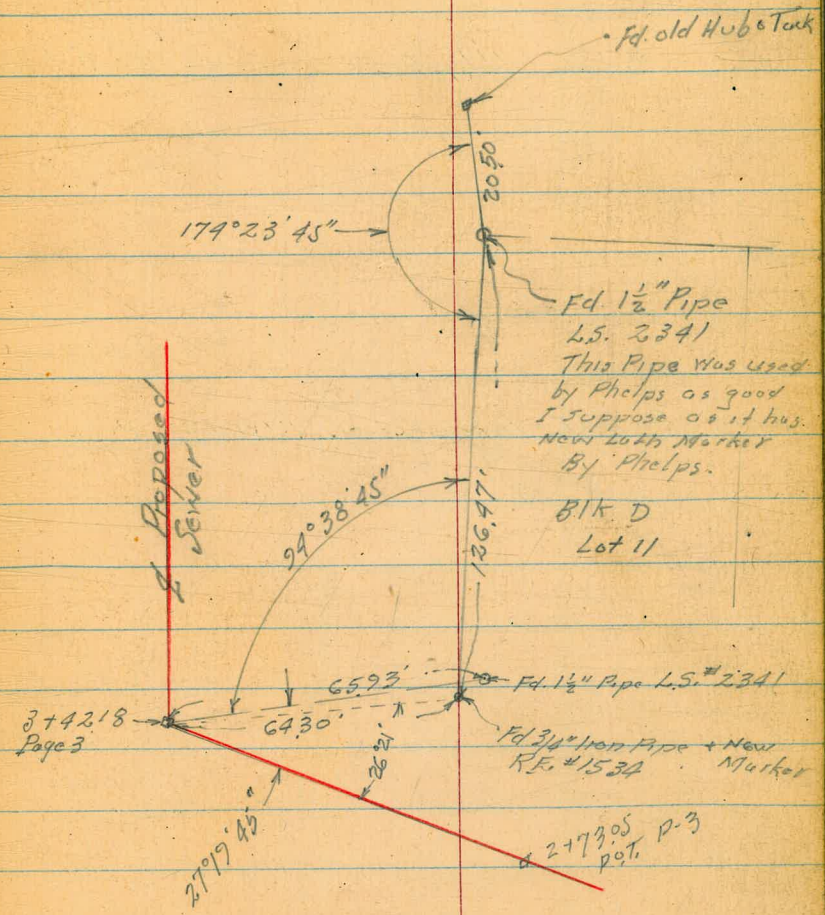 Fd. old Hub & Tack
20.50'
174°23'45"
Fd. 1½" Pipe
L.S. 2341
This Pipe was used
by Phelps as good
I suppose as it has
New Lath Marker
By Phelps.
Blk D
Lot 11
℄ Proposed
Sewer
94°38'45"
126.47'
65.93'
Fd. 1½" Pipe L.S.# 2341
64.30'
3+42.18
Page 3
Fd 3/4" Iron Pipe + New
R.E. #1534 Marker
26°21'
27°19'45"
2+73.05 P-3
P.O.T.